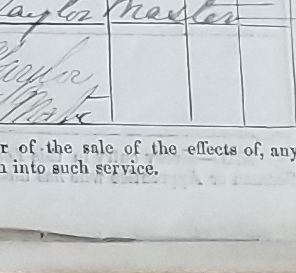 Taylor Master
Taylor
Mate
r of the sale of the effects of, any
n into such service.